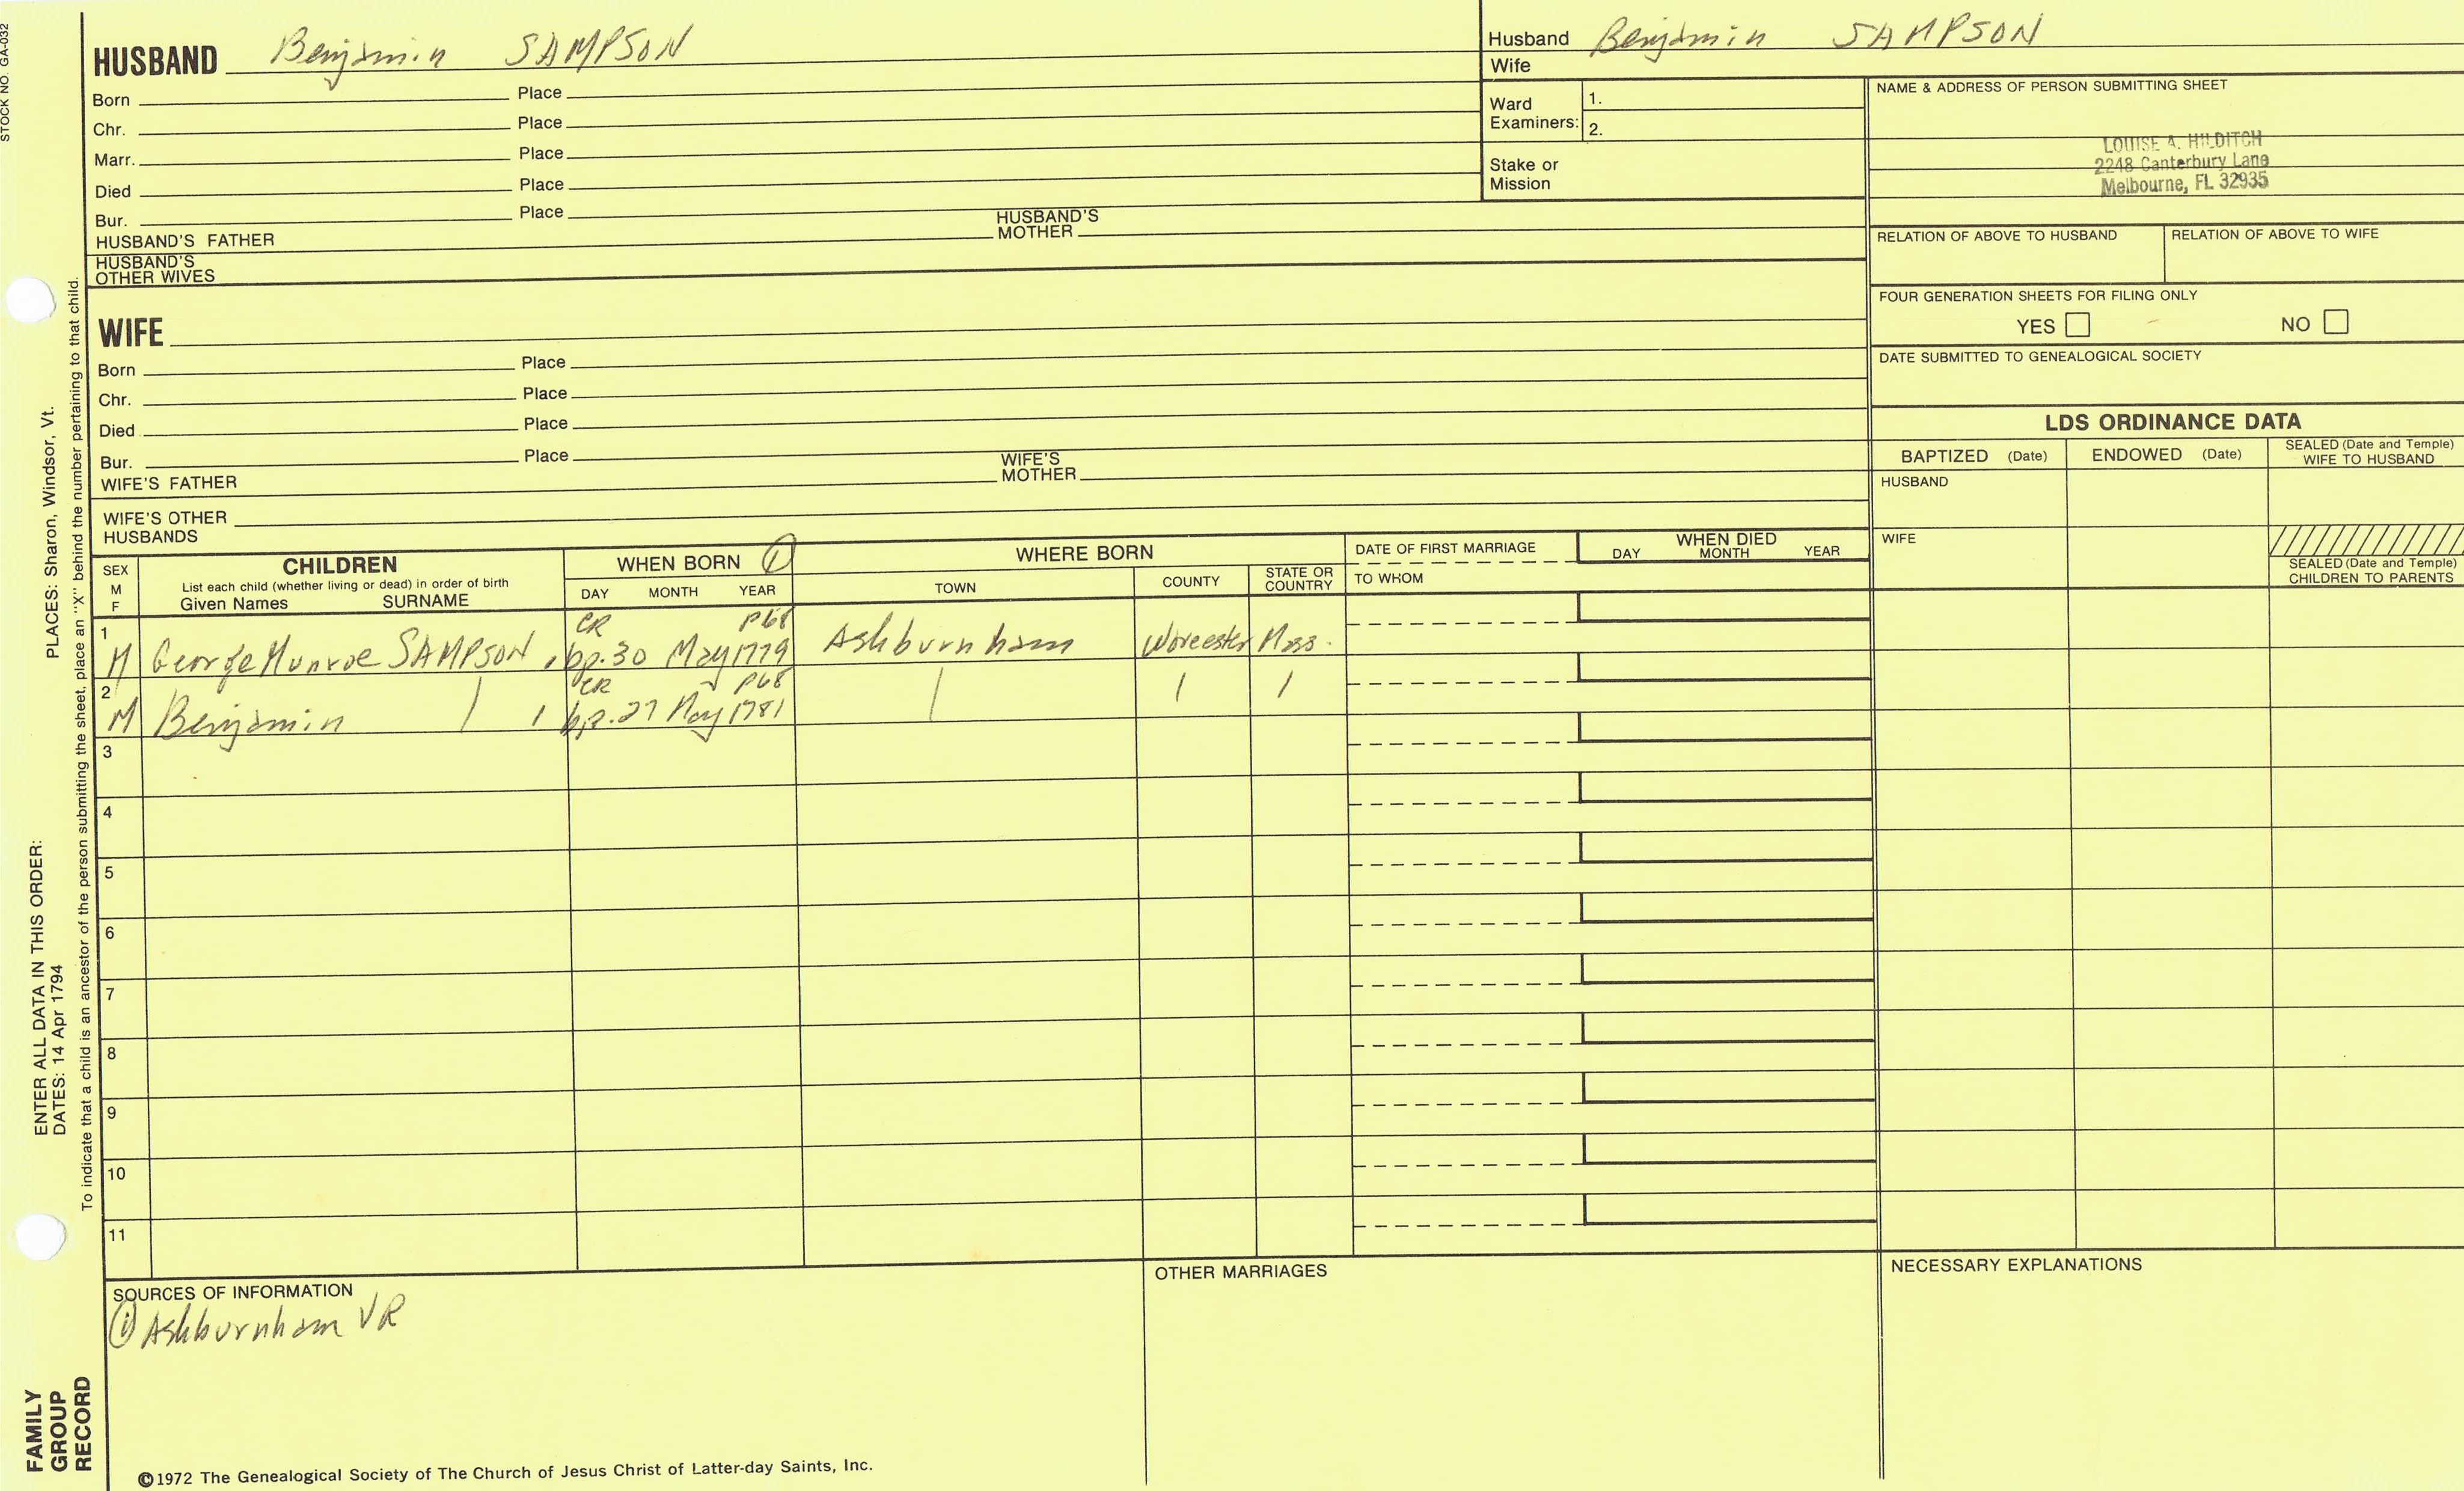 STOCK NO. GA-032
HUSBAND Benjamin SAMPSON
Born Place
Chr. Place
Marr. Place
Died Place
Bur. Place
HUSBAND'S FATHER HUSBAND'S MOTHER
HUSBAND'S OTHER WIVES
WIFE
Born Place
Chr. Place
Died Place
Bur. Place
WIFE'S FATHER WIFE'S MOTHER
WIFE'S OTHER HUSBANDS
Husband Benjamin SAMPSON
Wife
Ward Examiners: 1.
2.
Stake or Mission
NAME & ADDRESS OF PERSON SUBMITTING SHEET
LOUISE A. HILDITCH
2248 Canterbury Lane
Melbourne, FL 32935
RELATION OF ABOVE TO HUSBAND RELATION OF ABOVE TO WIFE
FOUR GENERATION SHEETS FOR FILING ONLY
YES NO
DATE SUBMITTED TO GENEALOGICAL SOCIETY
LDS ORDINANCE DATA
BAPTIZED (Date) ENDOWED (Date) SEALED (Date and Temple) WIFE TO HUSBAND
HUSBAND
WIFE
SEALED (Date and Temple) CHILDREN TO PARENTS
SEX M F
CHILDREN
List each child (whether living or dead) in order of birth
Given Names SURNAME
WHEN BORN ①
DAY MONTH YEAR
WHERE BORN
TOWN COUNTY STATE OR COUNTRY
DATE OF FIRST MARRIAGE
TO WHOM
WHEN DIED
DAY MONTH YEAR
1 CR P68
M George Munroe SAMPSON bp. 30 May 1779 Ashburnham Worcester Mass.
2 CR P68
M Benjamin bp. 27 May 1781
3
4
5
6
7
8
9
10
11
SOURCES OF INFORMATION
① Ashburnham VR
OTHER MARRIAGES
NECESSARY EXPLANATIONS
©1972 The Genealogical Society of The Church of Jesus Christ of Latter-day Saints, Inc.
FAMILY GROUP RECORD
ENTER ALL DATA IN THIS ORDER:
DATES: 14 Apr 1794 PLACES: Sharon, Windsor, Vt.
To indicate that a child is an ancestor of the person submitting the sheet, place an "X" behind the number pertaining to that child.